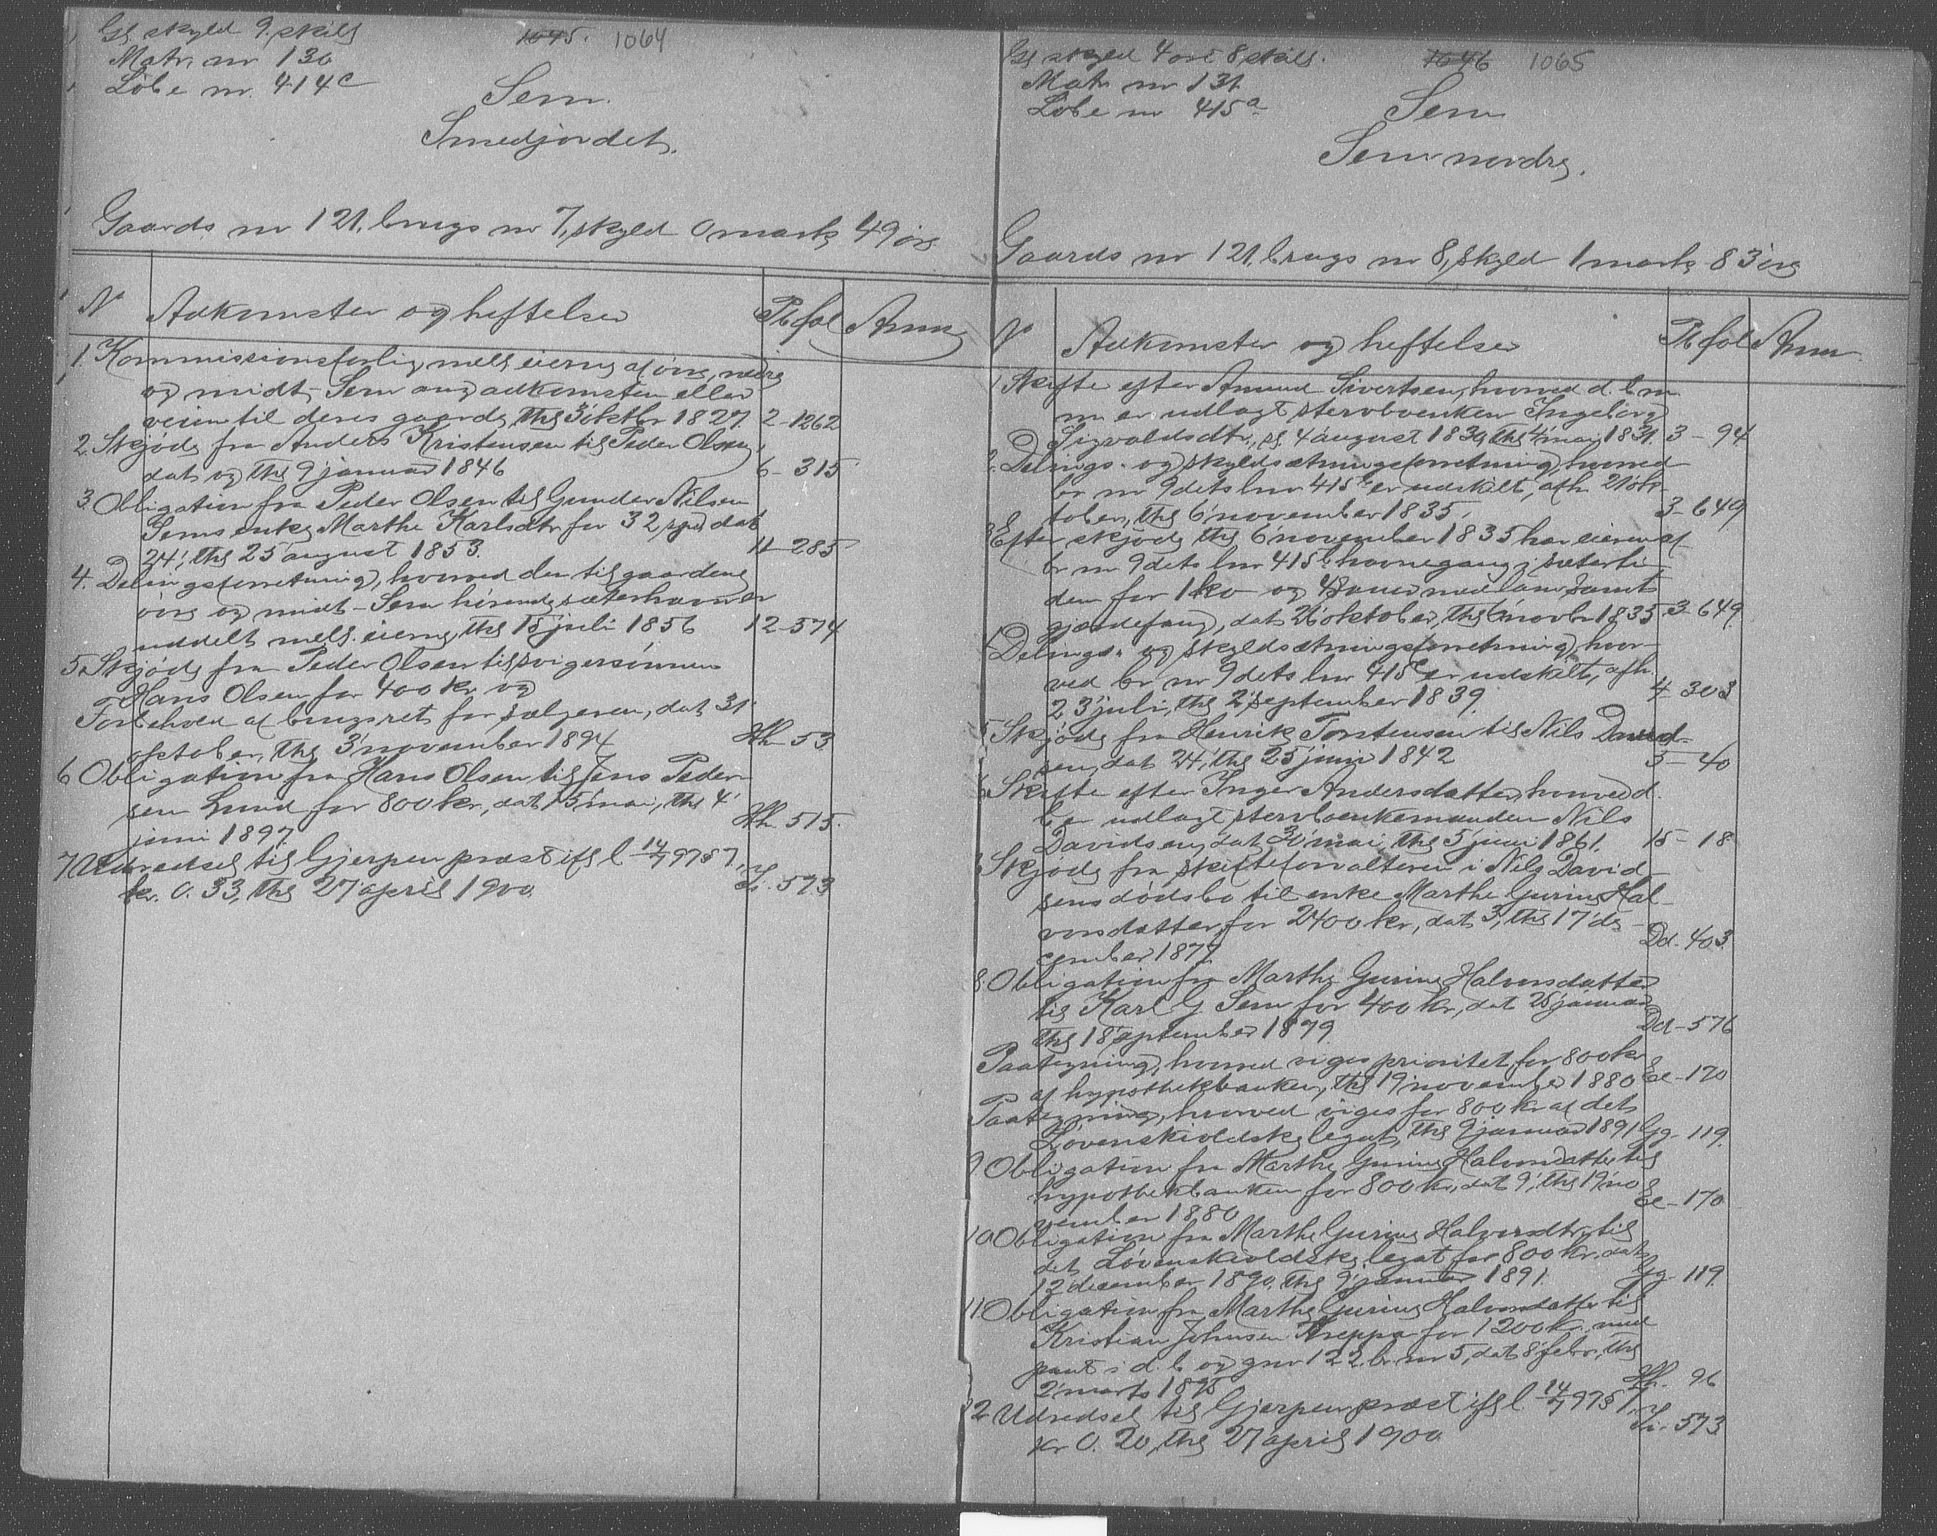 Gl skyld 9. skill
Matr. nr 130
Løbe nr. 414c
1045. 1064
Sem.
Smedjordet.
Gaards nr 121, brugs nr 7, skyld 0 mark 49 øre
No Adkomster og heftelser Pb fol Anm
1. Kommissionsforlig mell eierne af øvre, nedre
og midt-Sem ang adkomsten eller
veien til deres gaarde, thl 3' oktbr 1827 2-1262
2. Skjøde fra Anders Kristensen til Peder Olsen,
dat og thl 9 januar 1846 6-315
3. Obligation fra Peder Olsen til Gunder Nilsen
Sems enke Marthe Karlsdtr for 32 spd dat
24', thl 25 august 1853. 11-285
4. Delingsforretning, hvorved den til gaardene
øvre og midt-Sem hørende sæterhavn er
uddelt mell. eierne, thl 15 juli 1856 12-574
5. Skjøde fra Peder Olsen til svigersønnen
Hans Olsen for 400 kr og
Forbehold af brugsret for sælgeren, dat 31'
oktober, thl 3' november 1894 Hh-53
6 Obligation fra Hans Olsen til Jens Peder-
sen Lund for 800 kr, dat 15' mai, thl 4'
juni 1897. Hh. 515.
7 Udredsel til Gjerpen præst ifl l 14/7 97 § 7,
kr. 0.33, thl 27 april 1900. Ii. 573
Gl skyld 4 ort 8 skill.
Matr nr 131
Løbe nr 415a
1046 1065
Sem
Sem nordre.
Gaards nr 121, brugs nr 8, skyld 1 mark 83 øre
No Adkomster og heftelser Pb fol Anm.
1 Skifte efter Amund Sivertsen, hvorved d. b m
m er udlagt stervboenken Ingeborg
Sigvaldsdtr, sl. 4 august 1830, thl 4' mai 1831. 3-94
2. Delings- og skyldsætningsforretning, hvorved
br nr 9 dets lnr 415b er udskilt, afh. 21 ok-
tober, thl 6' november 1835. 3-649
3 Efter skjøde thl 6' november 1835 har eieren af
br nr 9 dets lnr 415b havnegang i sæterli
den for 1 ko og 4 sauer med lam samt
gjærdefang, dat 26' oktober, thl 6' novbr 1835 3-649
4 Delings- og skyldsætningsforretning, hvor-
ved br nr 9 dets lnr 415c er udskilt, afh
23' juli, thl 2' september 1839. 4-303
5 Skjøde fra Henrik Torstensen til Nils David-
sen, dat 24', thl 25' juni 1842 5-40
6 Skifte efter Inger Andersdatter, hvorved d.
b er udlagt stervboenkemanden Nils
Davidsen, dat 31' mai, thl 5' juni 1861. 15-18
7 Skjøde fra skifteforvalteren i Nils David-
sens dødsbo til enke Marthe Gurine Hal-
vorsdatter, for 2400 kr, dat 3', thl 17' de-
cember 1877. Dd. 403.
8. Obligation fra Marthe Gurine Halvorsdatter
til Karl G Sem for 400 kr, dat 25 januar,
thl 18 september 1879 Dd-576
Paategning, hvorved viges prioritet for 800 kr
af hypothekbanken, thl 19' november 1880 Ee-170
Paategning, hvorved viges for 800 kr af det
Løvenskioldske legat, thl 9' januar 1891 Gg-119.
9 Obligation fra Marthe Gurine Halvorsdatter til
hypothekbanken for 800 kr, dat 9', thl 19' no
vember 1880 Ee-170
10 Obligation fra Marthe Gurine Halvorsdtr til
det Løvenskioldske legat for 800 kr, dat
12 december 1890, thl 9' januar 1891. Gg-119
11 Obligation fra Marthe Gurine Halvorsdatter til
Kristian Johnsen Kreppa for 1200 kr med
pant i d. b og gnr 122 br nr 5, dat 8' febr, thl
2' marts 1895 Hh. 96
12 Udredsel til Gjerpen præst ifl l 14/7 97 §
kr 0.20, thl 27 april 1900. Ii. 573